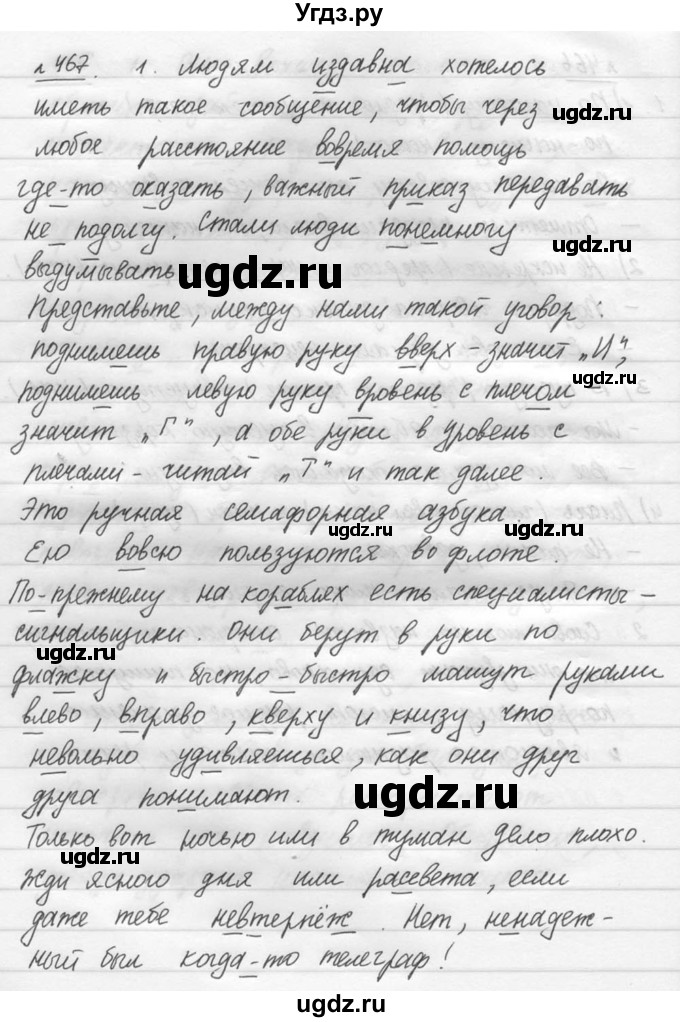 Угдз.ру
№467. 1. Людям издавна хотелось
иметь такое сообщение, чтобы через
ugdz.ru
любое расстояние вовремя помощь
где-то оказать, важный приказ передавать
не подолгу. Стали люди понемногу
ugdz.ru
выдумывать
ugdz.ru
Представьте, между нами такой уговор:
поднимешь правую руку вверх - значит „И",
ugdz.ru
поднимешь левую руку вровень с плечом -
значит „Г", а обе руки в уровень с
плечами - читай „Т" и так далее.
Это ручная семафорная азбука
ugdz.ru
Ею вовсю пользуются во флоте.
По-прежнему на кораблях есть специалисты -
сигнальщики. Они берут в руки по
ugdz.ru
флажку и быстро-быстро машут руками
влево, вправо, кверху и книзу, что
невольно удивляешься, как они друг
друга понимают.
ugdz.ru
Только вот ночью или в туман дело плохо.
ugdz.ru
Жди ясного дня или рассвета, если
даже тебе невтерпёж. Нет, ненадеж-
ный был когда-то телеграф!
ugdz.ru